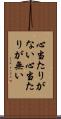 心当たりが
ない心当た
りが無い